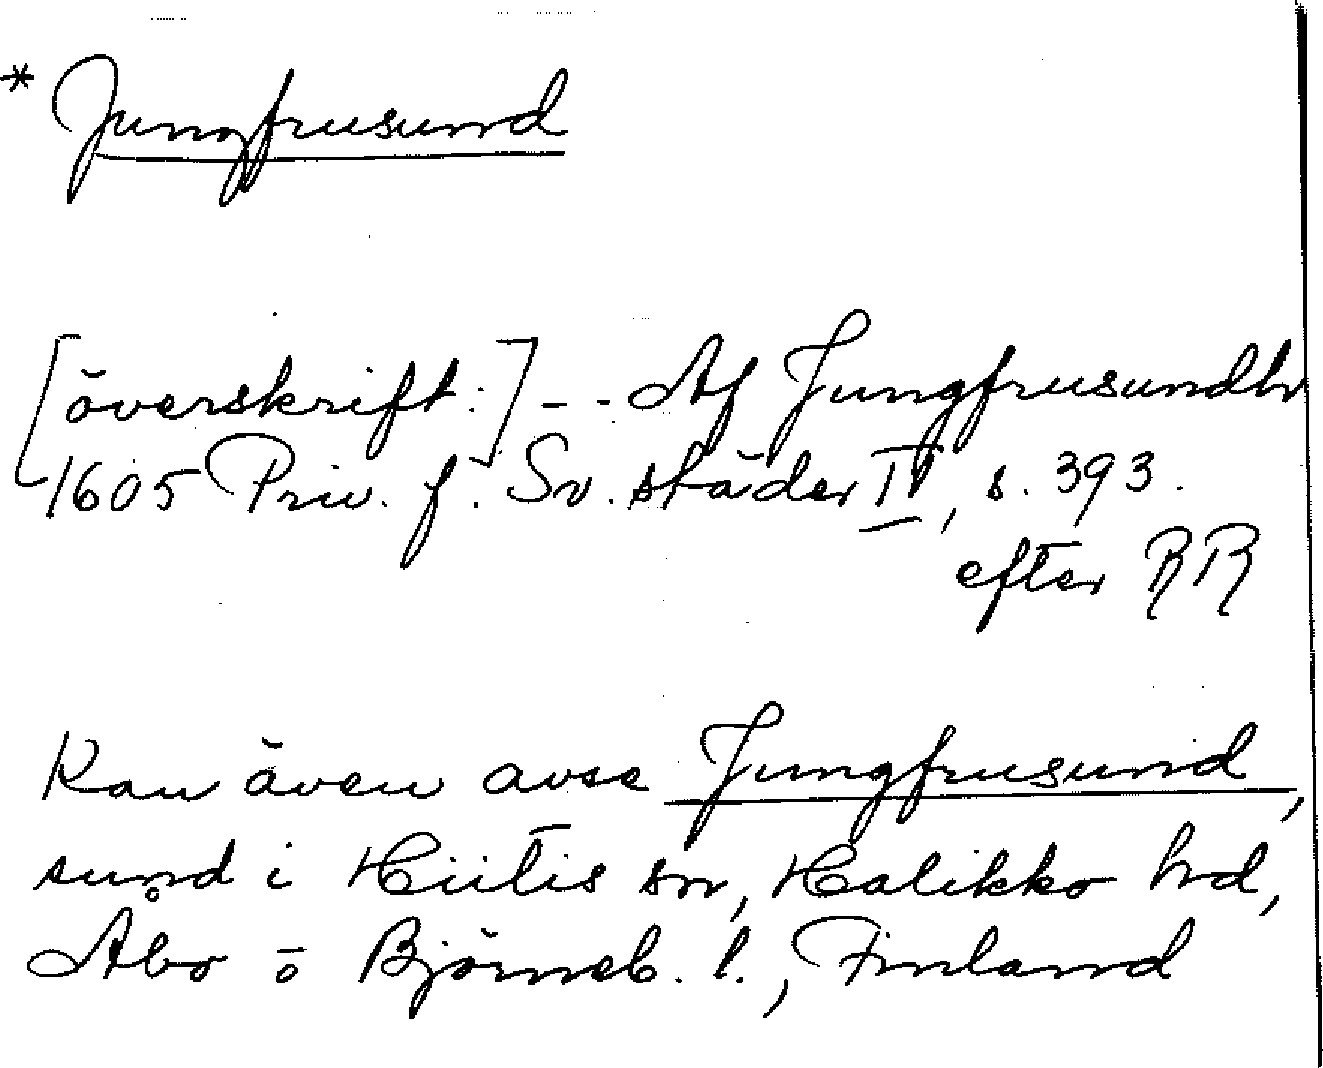 * Jungfrusund
[överskrift:] - - Af Jungfrusundh
1605 Priv. f. Sv. städer IV, s. 393.
efter RR
Kan även avse Jungfrusund,
sund i Hiitis sn, Halikko hd,
Åbo o Björneb. l., Finland